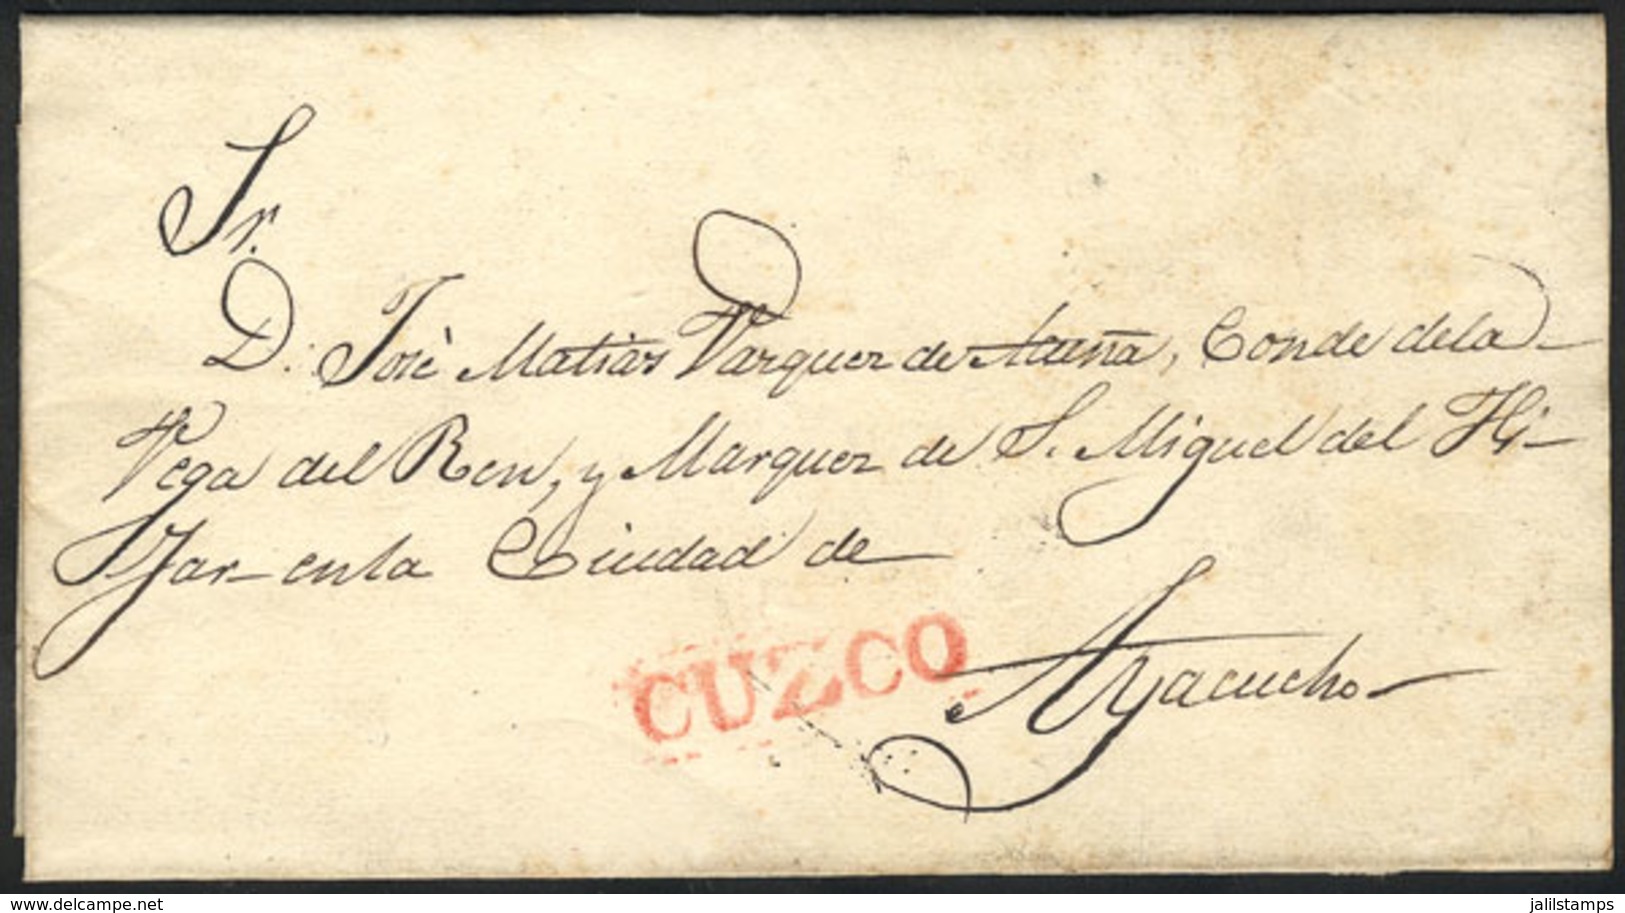 Sr.
D. José Matias Vazquez de Acuña, Conde de la
Vega del Ren, y Marquez de S. Miguel del Hi-
jar en la Ciudad de
Ayacucho
CUZCO
www.delcampe.net
jalilstamps